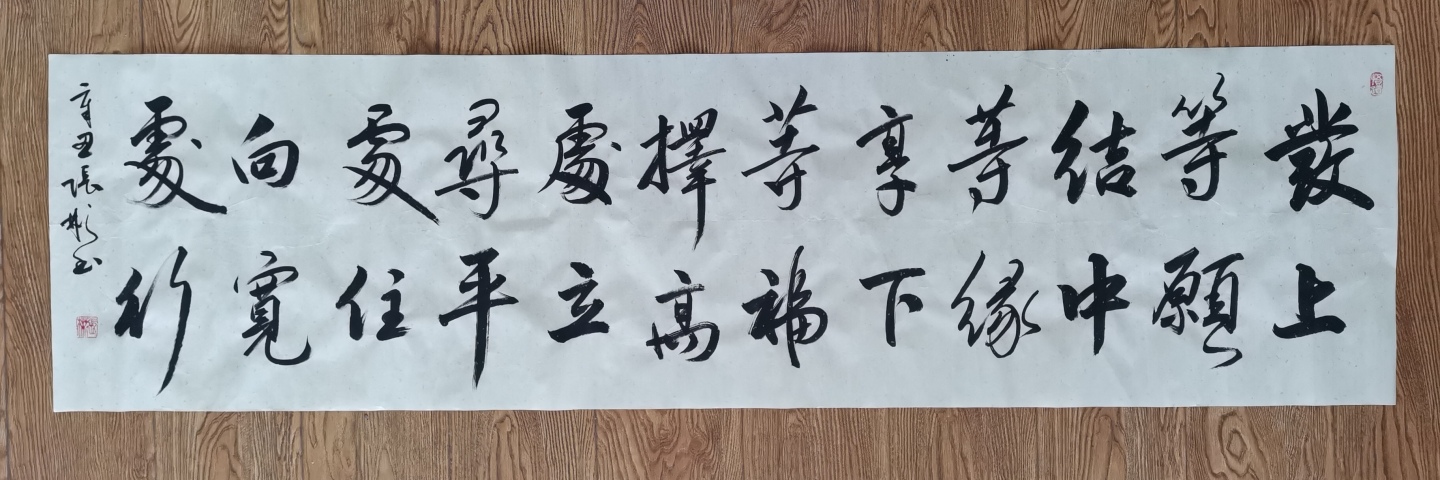 發上
等願
結中
等緣
享下
等福
擇高
處立
尋平
處住
向寬
處行
辛丑張彬書